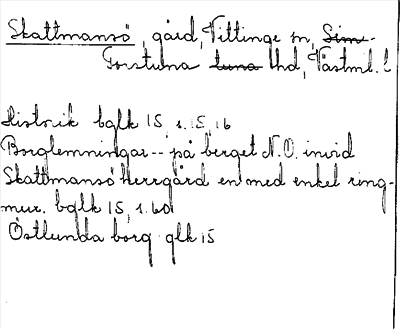 Skattmansö, gård, Vittinge sn, Sim-
Torstuna tuna hd, Västml. !
Historik bglk 15 s. 15, 16
Borglemningar -- på berget N.O. invid
Skattmansö herrgård en med enkel ring-
mur. bglk 15, s. 60
Östlunda borg glk 15